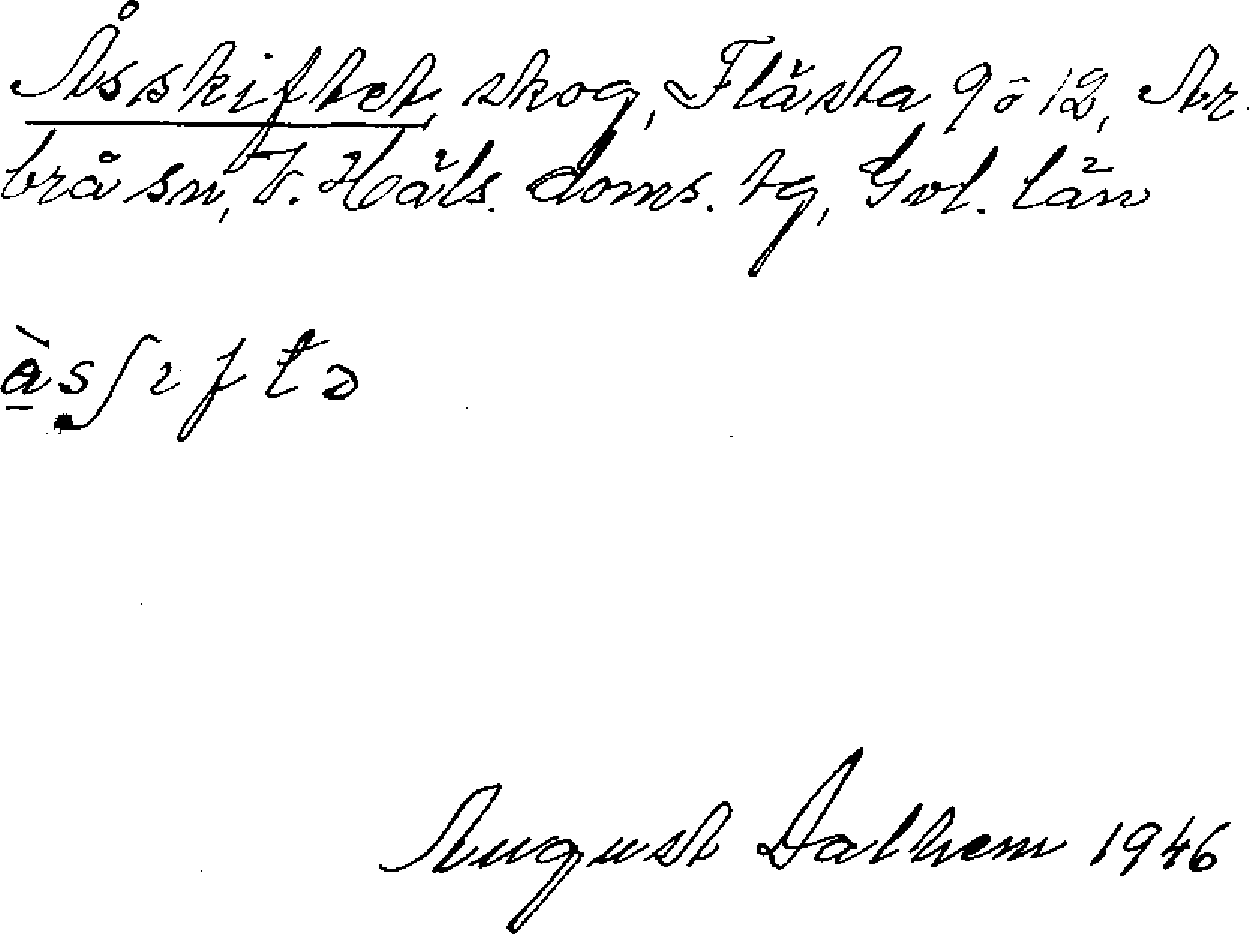 Åsskiftet, skog, Flästa 9 o 12, Ar-
brå sn, V. Häls. doms. tg, Gvl. län
August Dalhem 1946